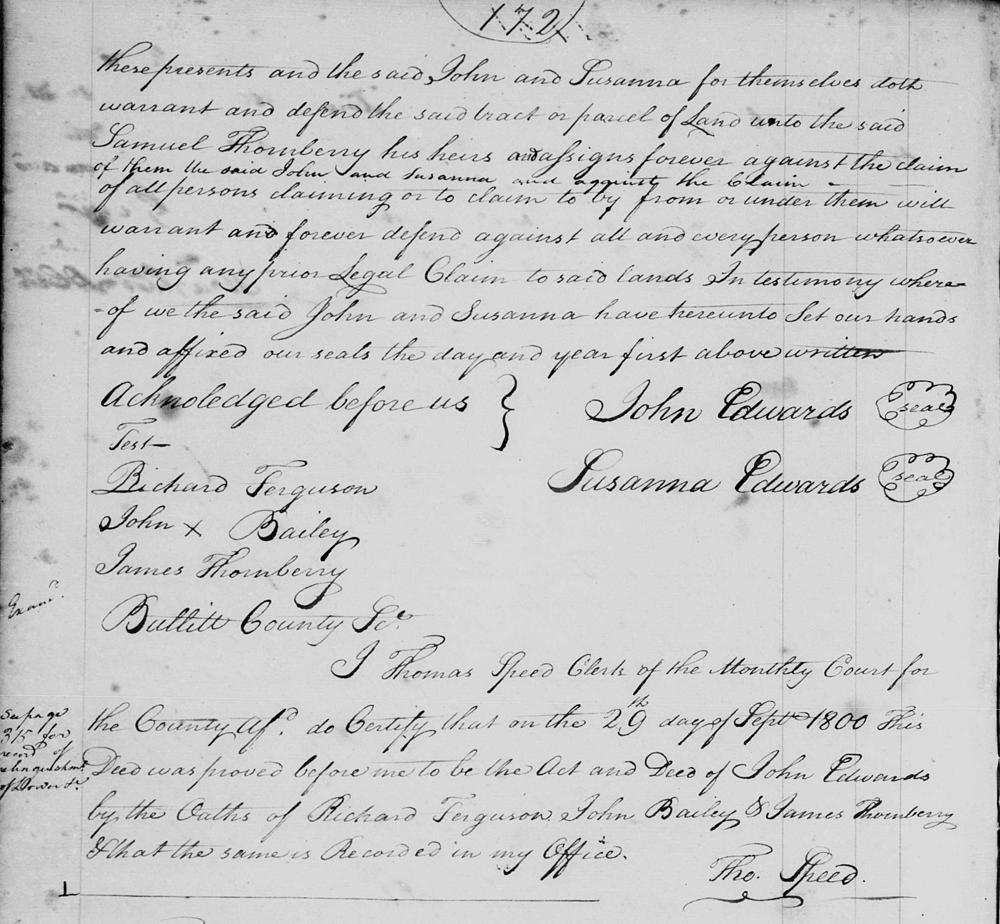 172
these presents and the said John and Susanna for themselves doth
warrant and defend the said tract or parcel of Land unto the said
Samuel Thornberry his heirs and assigns forever against the claim
of them the said John and Susanna and against the Claim
of all persons claiming or to claim to by from or under them will
warrant and forever defend against all and every person whatsoever
having any prior Legal Claim to said lands In testimony where-
-of we the said John and Susanna have hereunto Set our hands
and affixed our seals the day and year first above written
Acknoledged before us } John Edwards seal
Test—
Susanna Edwards seal
Richard Ferguson
John X Bailey
James Thornberry
Examd.
Bullitt County Sct.
I Thomas Speed Clerk of the Monthly Court for
the County Afd. do Certify that on the 29th day of Sept 1800 This
Deed was proved before me to be the Act and Deed of John Edwards
by the Oaths of Richard Ferguson John Bailey & James Thornberry
& that the same is Recorded in my Office.
Tho. Speed.
See page
315 for
record of
relinquishmt
of Dower &c